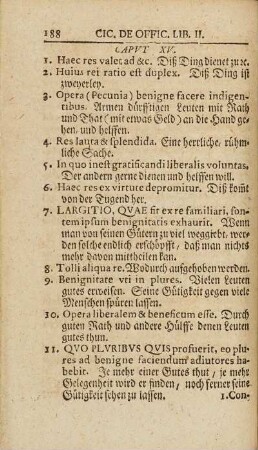 188 CIC. DE OFFIC. LIB. II.
CAPVT XV.
1. Haec res valet ad &c. Diß Ding dienet zu ꝛc.
2. Huius rei ratio est duplex. Diß Ding ist
zweyerley.
3. Opera (Pecunia) benigne facere indigen-
tibus. Armen dürfftigen Leuten mit Rath
und That (mit etwas Geld) an die Hand ge-
hen. und helffen.
4. Res lauta & splendida. Eine herrliche, rühm-
liche Sache.
5. In quo inest gratificandi liberalis voluntas.
Der andern gerne dienen und helffen will.
6. Haec res ex virtute depromitur. Diß kom̃t
von der Tugend her.
7. LARGITIO, QUAE fit ex re familiari, fon-
tem ipsum benignitatis exhaurit. Wenn
man von seinen Gütern zu viel weggiebt, wer-
den solche endlich erschöpfft, daß man nichts
mehr davon mittheilen kan.
8. Tolli aliqua re. Wodurch aufgehoben werden.
9. Benignitate vti in plures. Vielen Leuten
gutes erweisen. Seine Gütigkeit gegen viele
Menschen spüren lassen.
10. Opera liberalem & beneficum esse. Durch
guten Rath und andere Hülffe denen Leuten
gutes thun.
11. QVO PLVRIBVS QVIS profuerit, eo plu-
res ad benigne faciendum adiutores ha-
bebit. Je mehr einer Gutes thut, je mehr
Gelegenheit wird er finden, noch ferner seine
Gütigkeit sehen zu lassen. 1. Con-